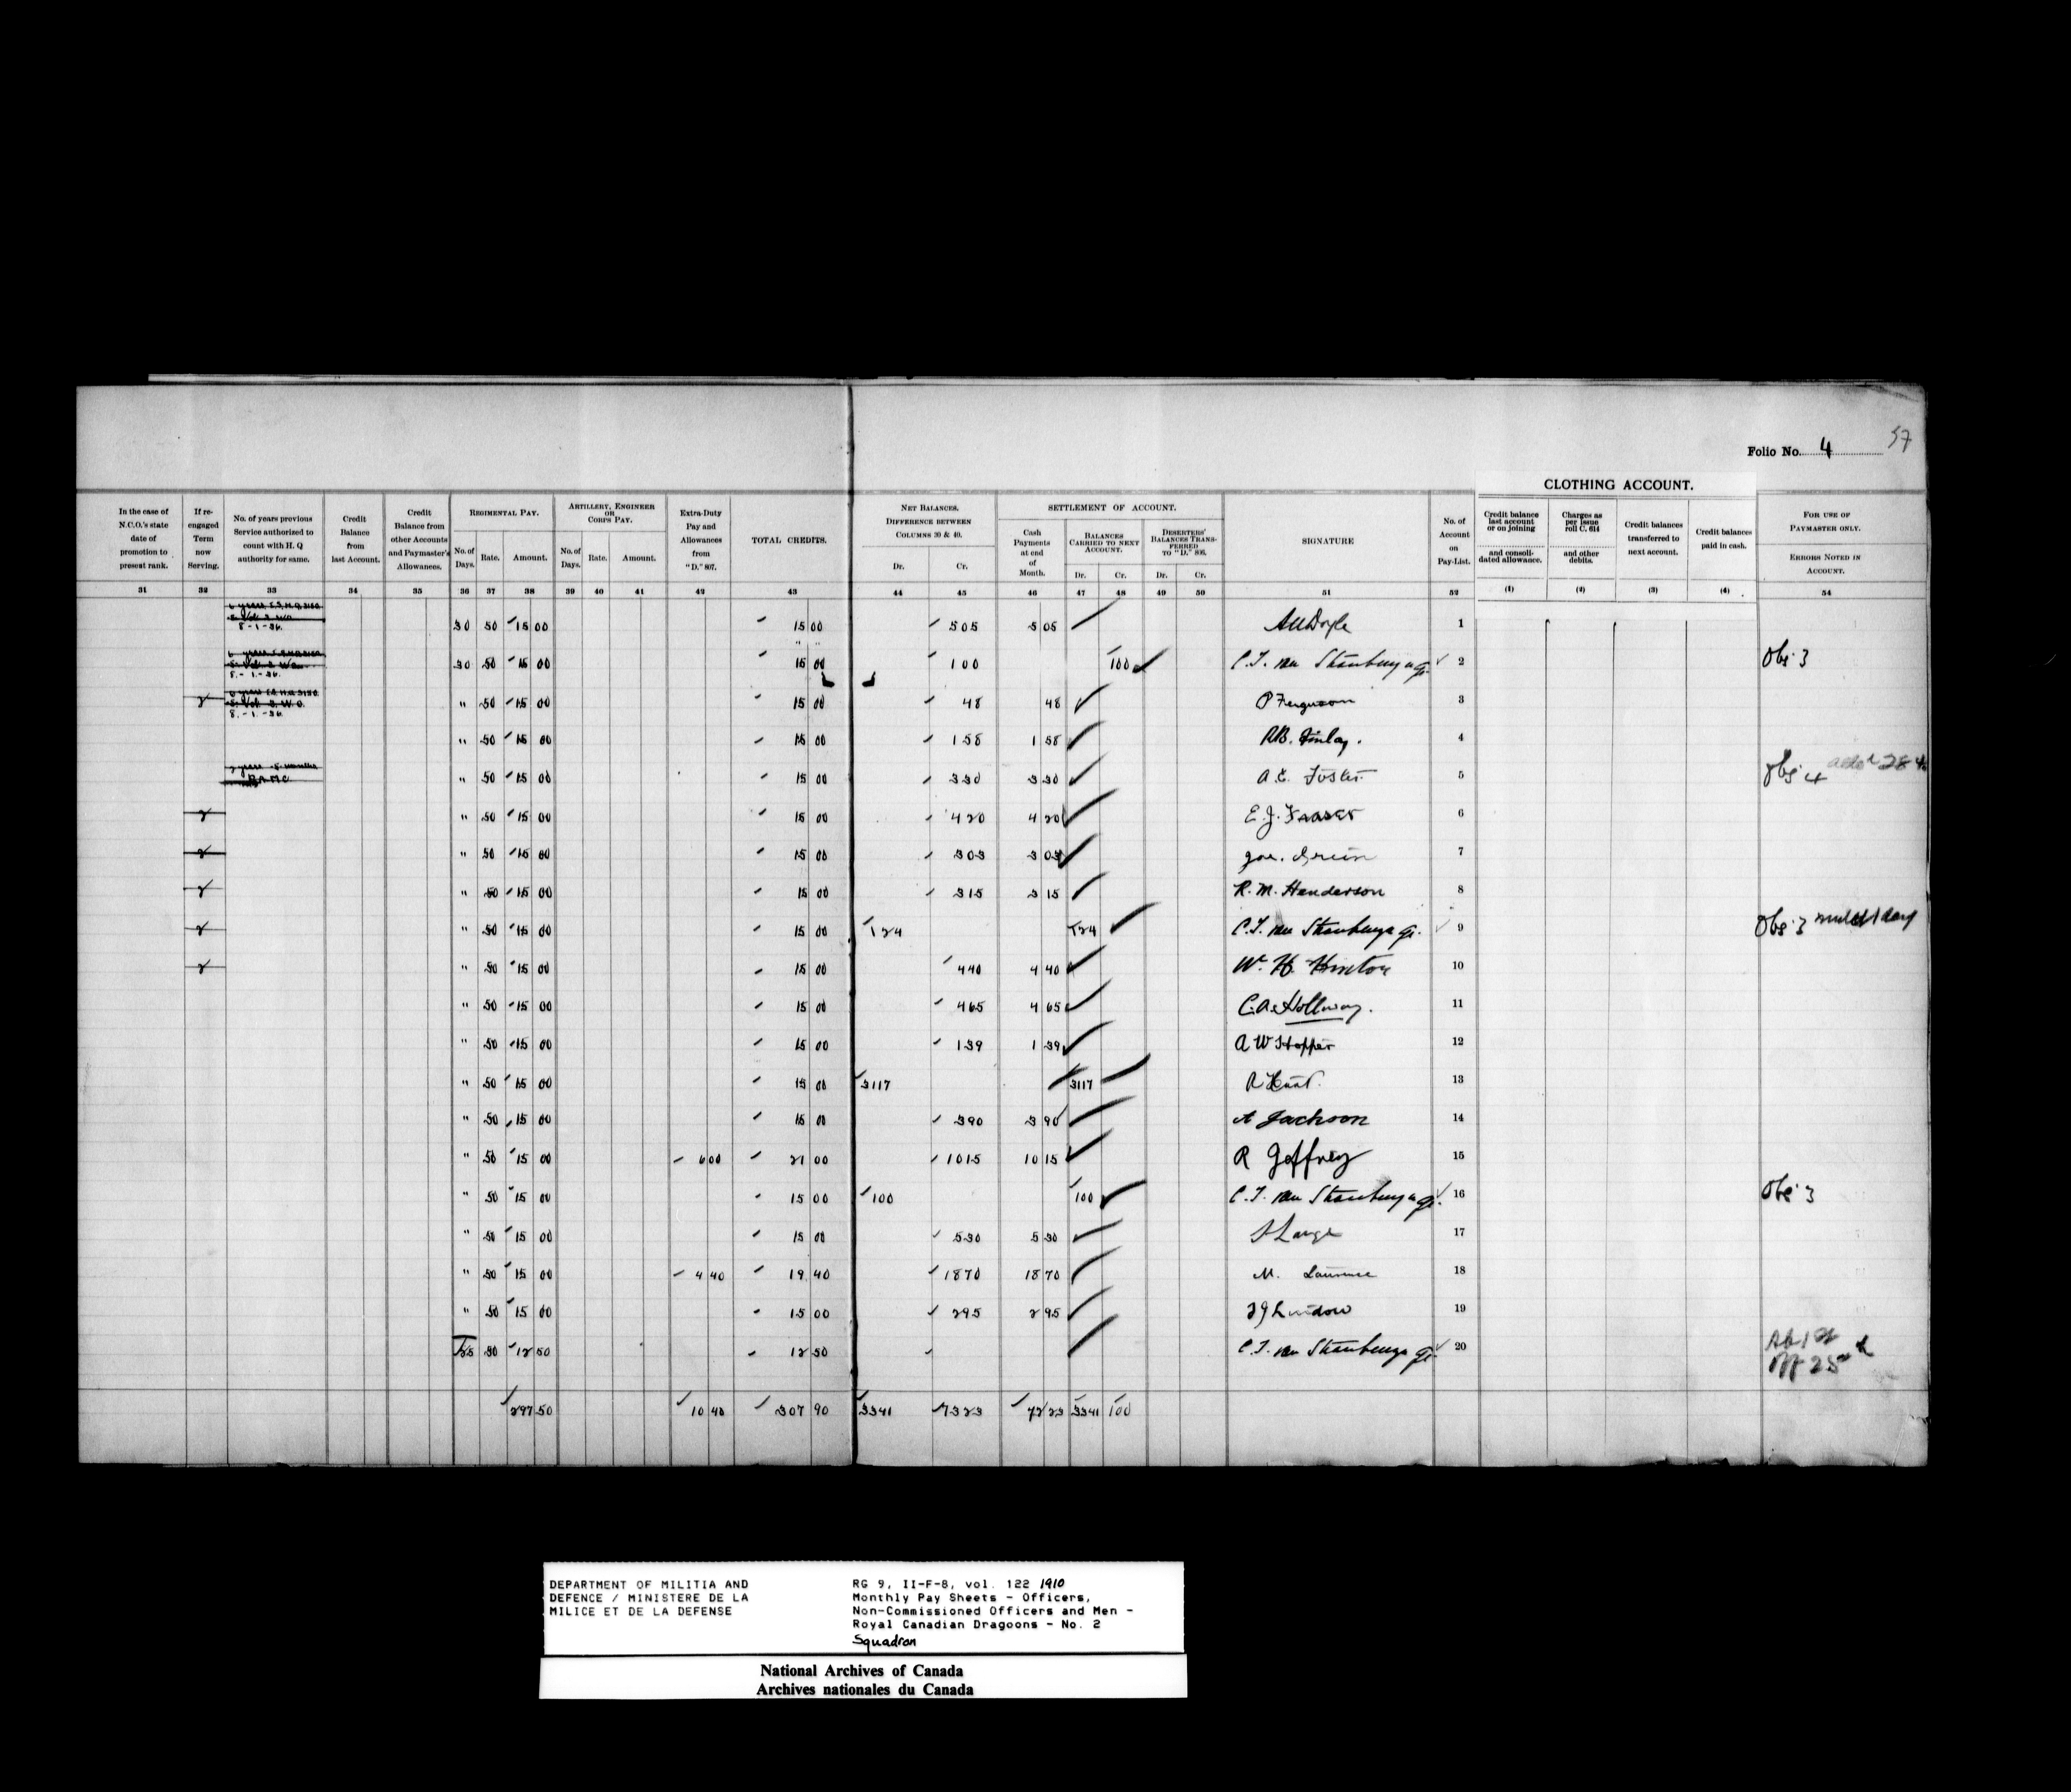 Folio No. 4 57
CLOTHING ACCOUNT.
In the case of N.C.O.'s state date of promotion to present rank.
If re-engaged Term now Serving.
No. of years previous Service authorized to count with H. Q authority for same.
Credit Balance from last Account.
Credit Balance from other Accounts and Paymaster's Allowances.
REGIMENTAL PAY.
No. of Days. Rate. Amount.
ARTILLERY, ENGINEER OR CORPS PAY.
No. of Days. Rate. Amount.
Extra-Duty Pay and Allowances from "D." 807.
TOTAL CREDITS.
NET BALANCES. DIFFERENCE BETWEEN COLUMNS 30 & 40.
Dr. Cr.
SETTLEMENT OF ACCOUNT.
Cash Payments at end of Month.
BALANCES CARRIED TO NEXT ACCOUNT.
Dr. Cr.
DESERTERS' BALANCES TRANSFERRED TO "D." 806.
Dr. Cr.
SIGNATURE
No. of Account on Pay-List.
Credit balance last account or on joining and consolidated allowance.
Charges as per issue roll C. 614 and other debits.
Credit balances transferred to next account.
Credit balances paid in cash.
FOR USE OF PAYMASTER ONLY.
ERRORS NOTED IN ACCOUNT.
31 32 33 34 35 36 37 38 39 40 41 42 43 44 45 46 47 48 49 50 51 52 (1) (2) (3) (4) 54
8-1-36. 30 50 15 00 15 00 5 05 5 05 1
8.-1.-36. 30 50 15 00 15 00 1 00 1 00 2 Obs 3
2 8.-1.-36. " 50 15 00 15 00 48 48 P Ferguson 3
" 50 15 00 15 00 1 58 1 58 RB. Finlay. 4
" 50 15 00 15 00 3 30 3 30 A. E. Foster 5 Obs 4
2 " 50 15 00 15 00 4 20 4 20 E. J. Fraser 6
2 " 50 15 00 15 00 3 03 3 03 7
2 " 50 15 00 15 00 3 15 3 15 R. M. Henderson 8
2 " 50 15 00 15 00 1 24 1 24 9 Obs 3
2 " 50 15 00 15 00 4 40 4 40 W. H. Hinton 10
" 50 15 00 15 00 4 65 4 65 C. A. Hollway. 11
" 50 15 00 15 00 1 39 1 39 A W Hopper 12
" 50 15 00 15 00 31 17 31 17 R Hunt. 13
" 50 15 00 15 00 3 90 3 90 A Jackson 14
" 50 15 00 6 00 21 00 10 15 10 15 R Jeffrey 15
" 50 15 00 15 00 1 00 1 00 16 Obs 3
" 50 15 00 15 00 5 30 5 30 17
" 50 15 00 4 40 19 40 18 70 18 70 M. Laurence 18
" 50 15 00 15 00 2 95 2 95 19
25 50 12 50 12 50 20
297 50 10 40 307 90 33 41 73 23 72 23 33 41 1 00
DEPARTMENT OF MILITIA AND
DEFENCE / MINISTERE DE LA
MILICE ET DE LA DEFENSE
RG 9, II-F-8, vol. 122 1910
Monthly Pay Sheets - Officers,
Non-Commissioned Officers and Men -
Royal Canadian Dragoons - No. 2
Squadron
National Archives of Canada
Archives nationales du Canada